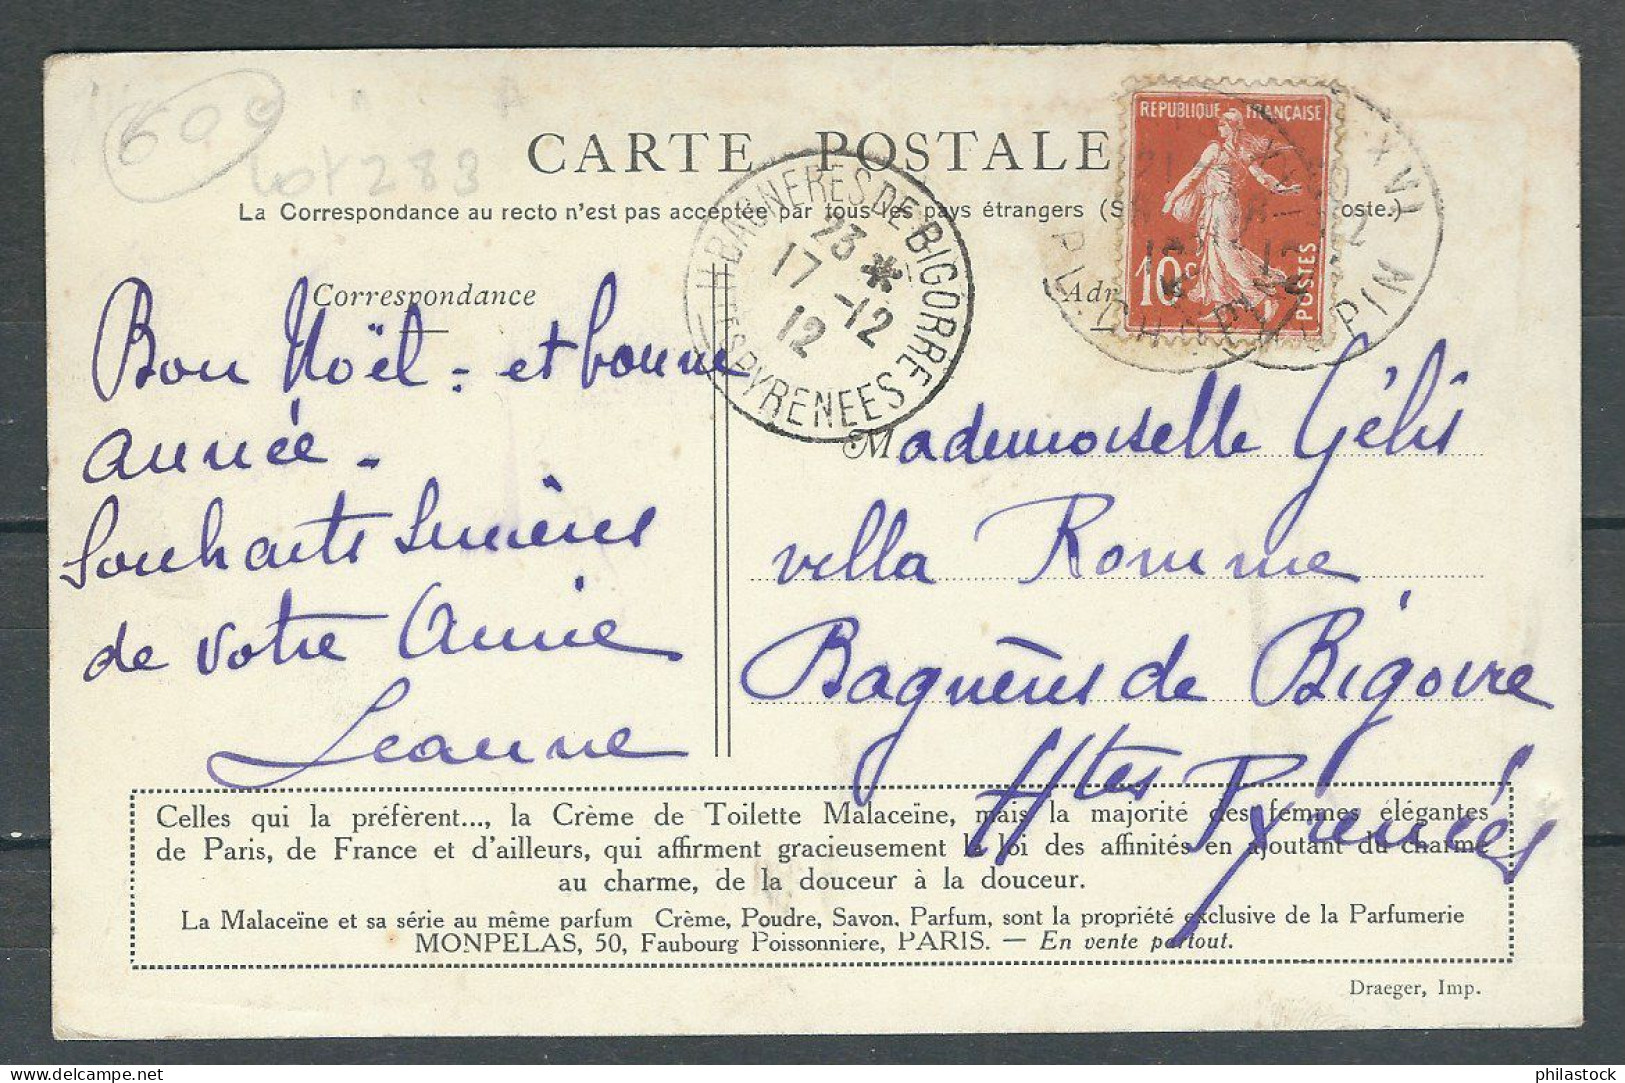 600
Lot 283
CARTE POSTALE
La Correspondance au recto n'est pas acceptée par tous les pays étrangers (S oste.)
REPUBLIQUE FRANÇAISE
10c
POSTES
BAGNERES DE BIGORRE
23 *
17 -12
12
HTES PYRENEES
XVI
Correspondance
Adr
Bon Noël - et bonne
année -
Souhaits sincères
de votre Amie
Jeanne
Mademoiselle Gélis
villa Romme
Bagnères de Bigorre
Htes Pyrénées
Celles qui la préfèrent..., la Crème de Toilette Malaceïne, mais la majorité des femmes élégantes
de Paris, de France et d'ailleurs, qui affirment gracieusement la loi des affinités en ajoutant du charme
au charme, de la douceur à la douceur.
La Malaceïne et sa série au même parfum Crème, Poudre, Savon, Parfum, sont la propriété exclusive de la Parfumerie
MONPELAS, 50, Faubourg Poissonniere, PARIS. — En vente partout.
Draeger, Imp.
Philatelie - philastock